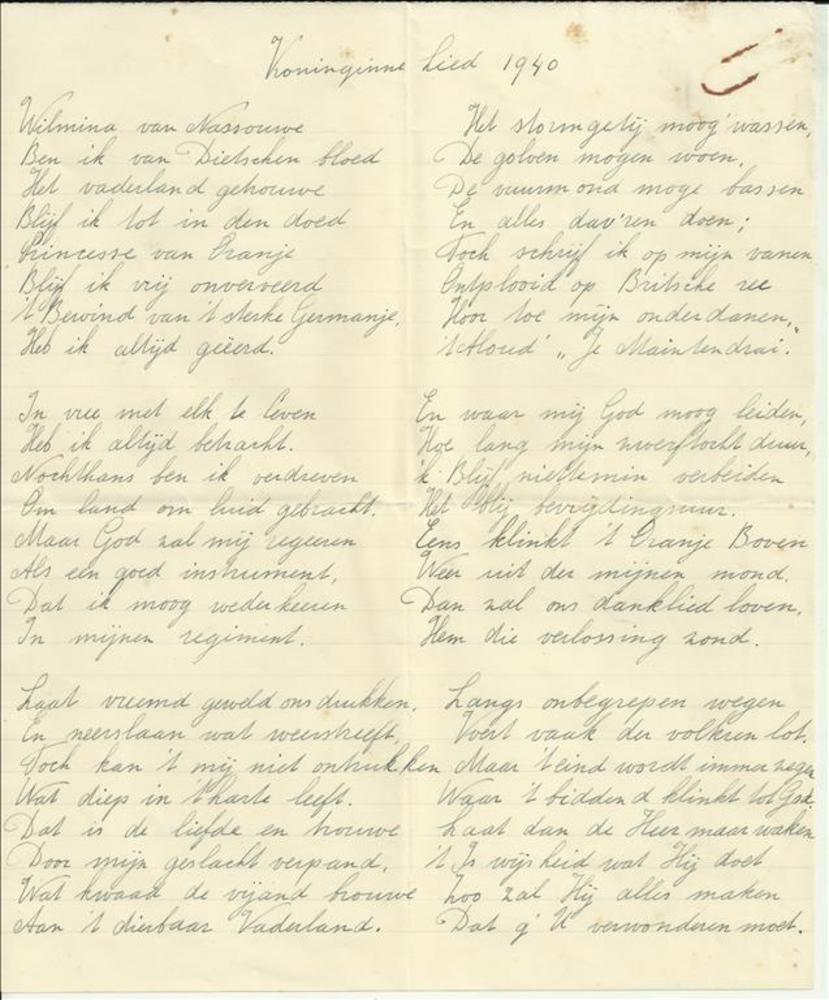 Koninginne Lied 1940
Wilmina van Nassouwe
Ben ik van Dietschen bloed
Het vaderland getrouwe
Blijf ik tot in den doed
Princesse van Oranje
Blijf ik vrij onverveerd
't Bewind van 't sterke Germanje,
Heb ik altijd geëerd.
In vree met elk te leven
Heb ik altijd betracht.
Nochthans ben ik verdreven
Om land om luid gebracht.
Maar God zal mij regeeren
Als een goed instrument,
Dat ik moog wederkeeren
In mijnen regiment.
Laat vreemd geweld ons drukken,
En neerslaan wat weerstreeft,
Toch kan 't mij niet ontrukken
Wat diep in 't harte leeft.
Dat is de liefde en trouwe
Door mijn geslacht verpand,
Wat kwaad de vijand brouwe
Aan 't dierbaar Vaderland.
Het stormgetij moog' wassen,
De golven mogen woen,
De vuurmond moge bassen
En alles dav'ren doen;
Toch schrijf ik op mijn vanen
Ontplooid op Britsche ree
Hoor toe mijn onderdanen,
't Aloud' „Je Maintendrai".
En waar mij God moog leiden,
Hoe lang mijn zwerftocht duur,
'k Blijf niettemin verbeiden
Het blij bevrijdingsuur.
Eens klinkt 't Oranje Boven
Weer uit der mijnen mond.
Dan zal ons danklied loven,
Hem die verlossing zond.
Langs onbegrepen wegen
Voert vaak der volk'ren lot.
Maar 't eind wordt immer zegen
Waar 't biddend klinkt tot God.
Laat dan de Heer maar waken
't Is wijsheid wat Hij doet
Zoo zal Hij alles maken
Dat g' U verwonderen moet.